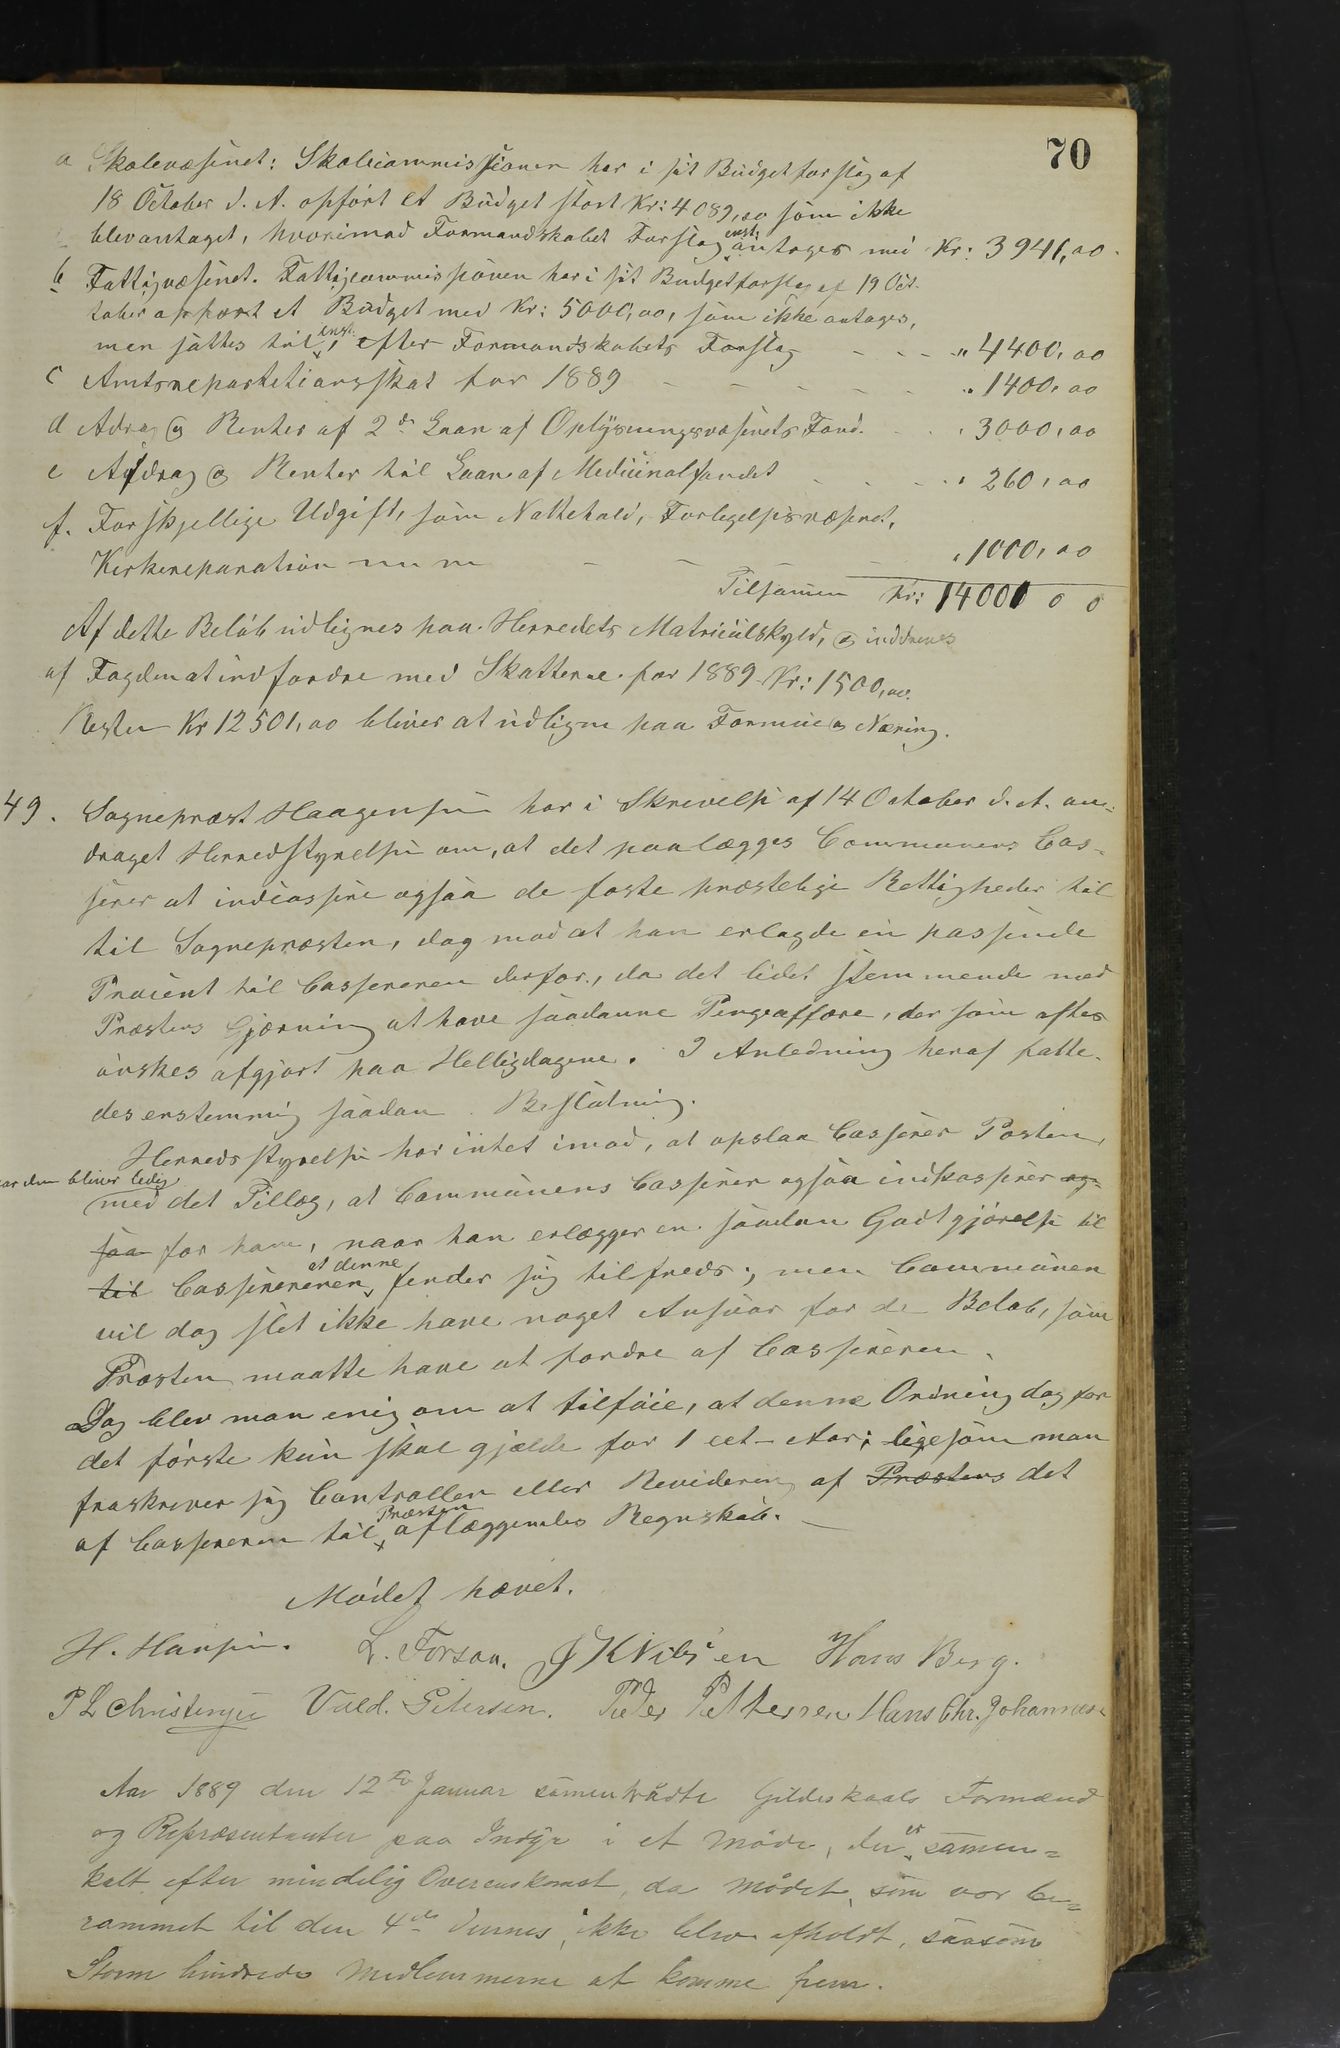 70
a Skolevæsinet: Skolecommissionen har i sit Budgetforslag af
18 October d. A. opført et Budget stort Kr: 4089,00 som ikke
blev antaget, hvorimod Formandskabet Forslag enst. antages med Kr: 3941,00.
b Fattigvæsinet. Fattigcommissionen har i sit Budgetforslag af 19 Oct.
tober opført et Budget med Kr: 5000,00, som ikke antages,
men sattes til, enst. efter Formandskabets Forslag - - - " 4400,00
c Amtsrepartetionsskat for 1889 - - - - - " 1400,00
d Adrag og Renter af 2de Laan af Oplysningsvæsinets Fond. - - " 3000,00
e Afdrag og Renter til Laan af Medicinalfondet - - - - " 260,00
f. Forskjellige Udgift, som Nattehold, Forlegelsisvæsinet,
Kirkereparation m m m - - - - " 1000,00
Tilsamen Kr: 14001 00
Af dette Beløb udlignes paa Herredets Matriculskyld, og inddrives
af Fogden at indfordre med Skatterne for 1889 Kr: 1500,00.
Resten Kr 12501,00 bliver at udligne paa Formue og Næring.
49. Sognepræst Haagensen har i Skrivelse af 14 October d. A. an-
draget Herredstyrelsen om, at det paalægges Communens Cas-
serer at indcassere ogsaa de faste præstelige Rettigheder til
til Sognepræsten, dog mod at han erlagde en passende
Procent til Cassereren derfor, da det lidet stemmende med
Præstens Gjerning at have saadanne Pengeaffære, der som oftes
ønskes afgjort paa Helligdagene. I Anledning heraf fatte-
des enstemmig saadan Beslutning.
Herredsstyrelsen har intet imod, at opslaa Casserer Posten,
naar den bliver ledig
med det Tillæg, at Communens Casserer ogsaa indkasserer og-
saa for ham, naar han erlægger en saadan Godtgjørelse til
til Cassereren, at denne finder sig tilfreds; men Communen
vil dog slet ikke have noget Ansvar for de Beløb, som
Præsten maatte have at fordre af Cassereren.
Dog blev man enig om at tilføie, at denne Ordning dog for
det første kun skal gjælde for 1 eet Aar; ligesom man
fraskriver sig Controllen eller Revidering af Præstens det
af Cassereren til Præsten aflæggendes Regnskab. -
Mødet hævet.
H. Hansen. L. Forsaa. J K Nilsen Hans Berg.
P L Christensen Vald. Petersen. Peder Pettersen Hans Chr. Johannes.
Aar 1889 den 12te Januar samentraadte Gildeskaals Formænd
og Repræsentanter paa Indyr i et Møde, der er samen-
kalt efter mindelig Overenskomst, da Mødet, som var be-
rammet til den 4de dennes, ikke blev afholdt, saasom
Storm hindrede Medlemmerne at komme frem.